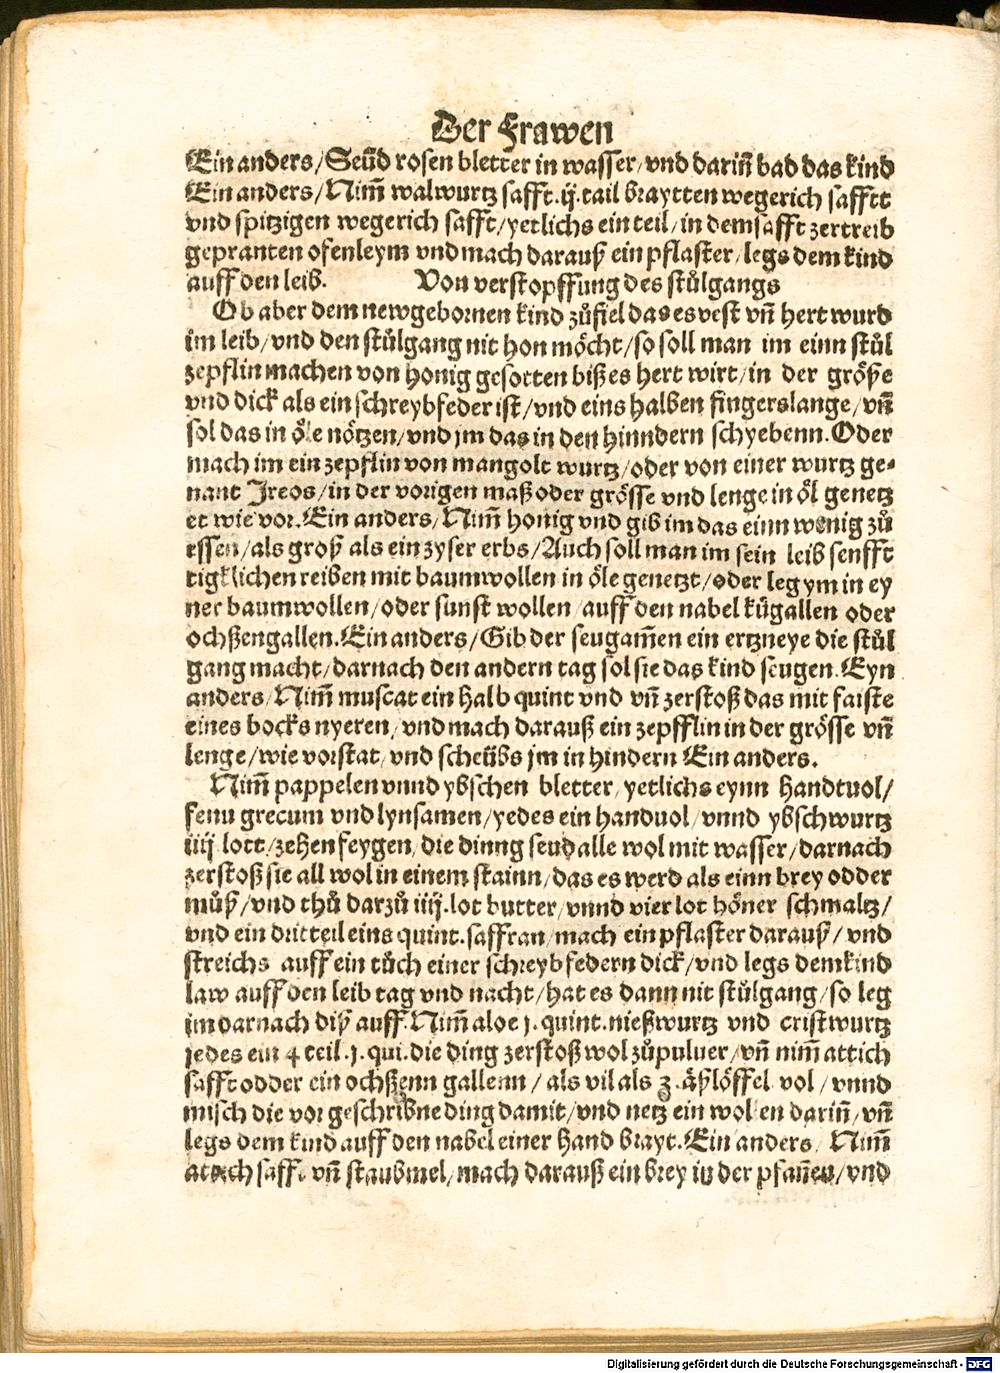 Der Frawen
Ein anders/Seüd rosen bletter in wasser/vnd dariñ bad das kind
Ein anders/Nim̃ walwurtz safft.ij.tail braytten wegerich safftt
vnd spitzigen wegerich safft/yetlichs ein teil/in dem safft zertreib
gepranten ofenleym vnd mach darauß ein pflaster/legs dem kind
auff den leib. Von verstopffung des stůlgangs
Ob aber dem newgebornen kind zůfiel das es vest vñ hert wurd
im leib/vnd den stůlgang nit hon möcht/so soll man im einn stůl
zepflin machen von honig gesotten biß es hert wirt/in der größe
vnd dick als ein schreybfeder ist/vnd eins halben fingers lange/vñ
sol das in öle nötzen/vnd jm das in den hinndern schyebenn.Oder
mach im ein zepflin von mangolt wurtz/oder von einer wurtz ge⸗
nant Jreos/in der vorigen maß oder grösse vnd lenge in öl genetz
et wie vor.Ein anders/Nim̃ honig vnd gib im das einn wenig zů
essen/als groß als ein zyser erbs/Auch soll man im sein leib senfft
tigklichen reiben mit baumwollen in öle genetzt/oder leg ym in ey
ner baumwollen/oder sunst wollen/auff den nabel kügallen oder
ochßengallen.Ein anders/Gib der seugam̃en ein ertzneye die stůl
gang macht/darnach den andern tag sol sie das kind seugen.Eyn
anders/Nim̃ muscat ein halb quint vnd vñ zerstoß das mit faiste
eines bocks nyeren/vnd mach darauß ein zepfflin in der grösse vñ
lenge/wie vorstat/vnd scheübs jm in hindern Ein anders.
Nim̃ pappelen vnnd ybschen bletter/yetlichs eynn handtuol/
fenu grecum vnd lynsamen/yedes ein handuol/vnnd ybschwurtz
iiij lott/zehen feygen/die dinng seud alle wol mit wasser/darnach
zerstoß sie all wol in einem stainn/das es werd als einn brey odder
můß/vnd thů darzů iiij.lot butter/vnnd vier lot höner schmaltz/
vnd ein dritteil eins quint.saffran/mach ein pflaster darauß/vnd
streichs auff ein tůch einer schreybfedern dick/vnd legs dem kind
law auff den leib tag vnd nacht/hat es dann nit stůlgang/so leg
im darnach diß auff.Nim̃ aloe j.quint.nießwurtz vnd cristwurtz
jedes ein 4 teil.j.qui.die ding zerstoß wol zů puluer/vñ nim̃ attich
safft odder ein ochßenn gallenn/als vil als 2.äßlöffel vol/vnnd
misch die vor geschribne ding damit/vnd netz ein wollen dariñ/vñ
legs dem kind auff den nabel einer hand brayt.Ein anders/Nim̃
attich safft vñ staubmel/mach darauß ein brey in der pfañen/vnd
Digitalisierung gefördert durch die Deutsche Forschungsgemeinschaft - DFG